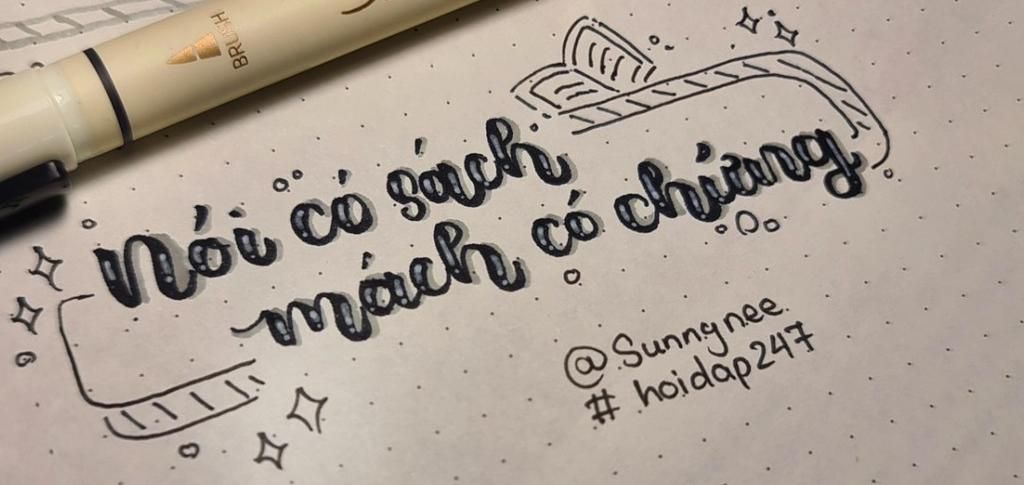 BRUSH
Nói có sách
mách có chứng
@Sunnynee.
# hoidap247